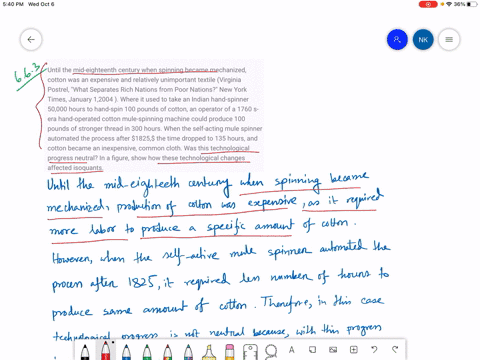 5:40 PM Wed Oct 6
36%
NK
6.6.3
Until the mid-eighteenth century when spinning became mechanized,
cotton was an expensive and relatively unimportant textile (Virginia
Postrel, "What Separates Rich Nations from Poor Nations?" New York
Times, January 1,2004 ). Where it used to take an Indian hand-spinner
50,000 hours to hand-spin 100 pounds of cotton, an operator of a 1760 s-
era hand-operated cotton mule-spinning machine could produce 100
pounds of stronger thread in 300 hours. When the self-acting mule spinner
automated the process after $1825,$ the time dropped to 135 hours, and
cotton became an inexpensive, common cloth. Was this technological
progress neutral? In a figure, show how these technological changes
affected isoquants.
Until the mid-eighteeth century when spinning became
mechanized, production of cotton was expensive, as it required
more labor to produce a specific amount of cotton.
However, when the self-active mule spinner automated the
process after 1825, it required less number of hours to
produce same amount of cotton. Therefore, in this case
technological progress is not neutral because, with this progress
A